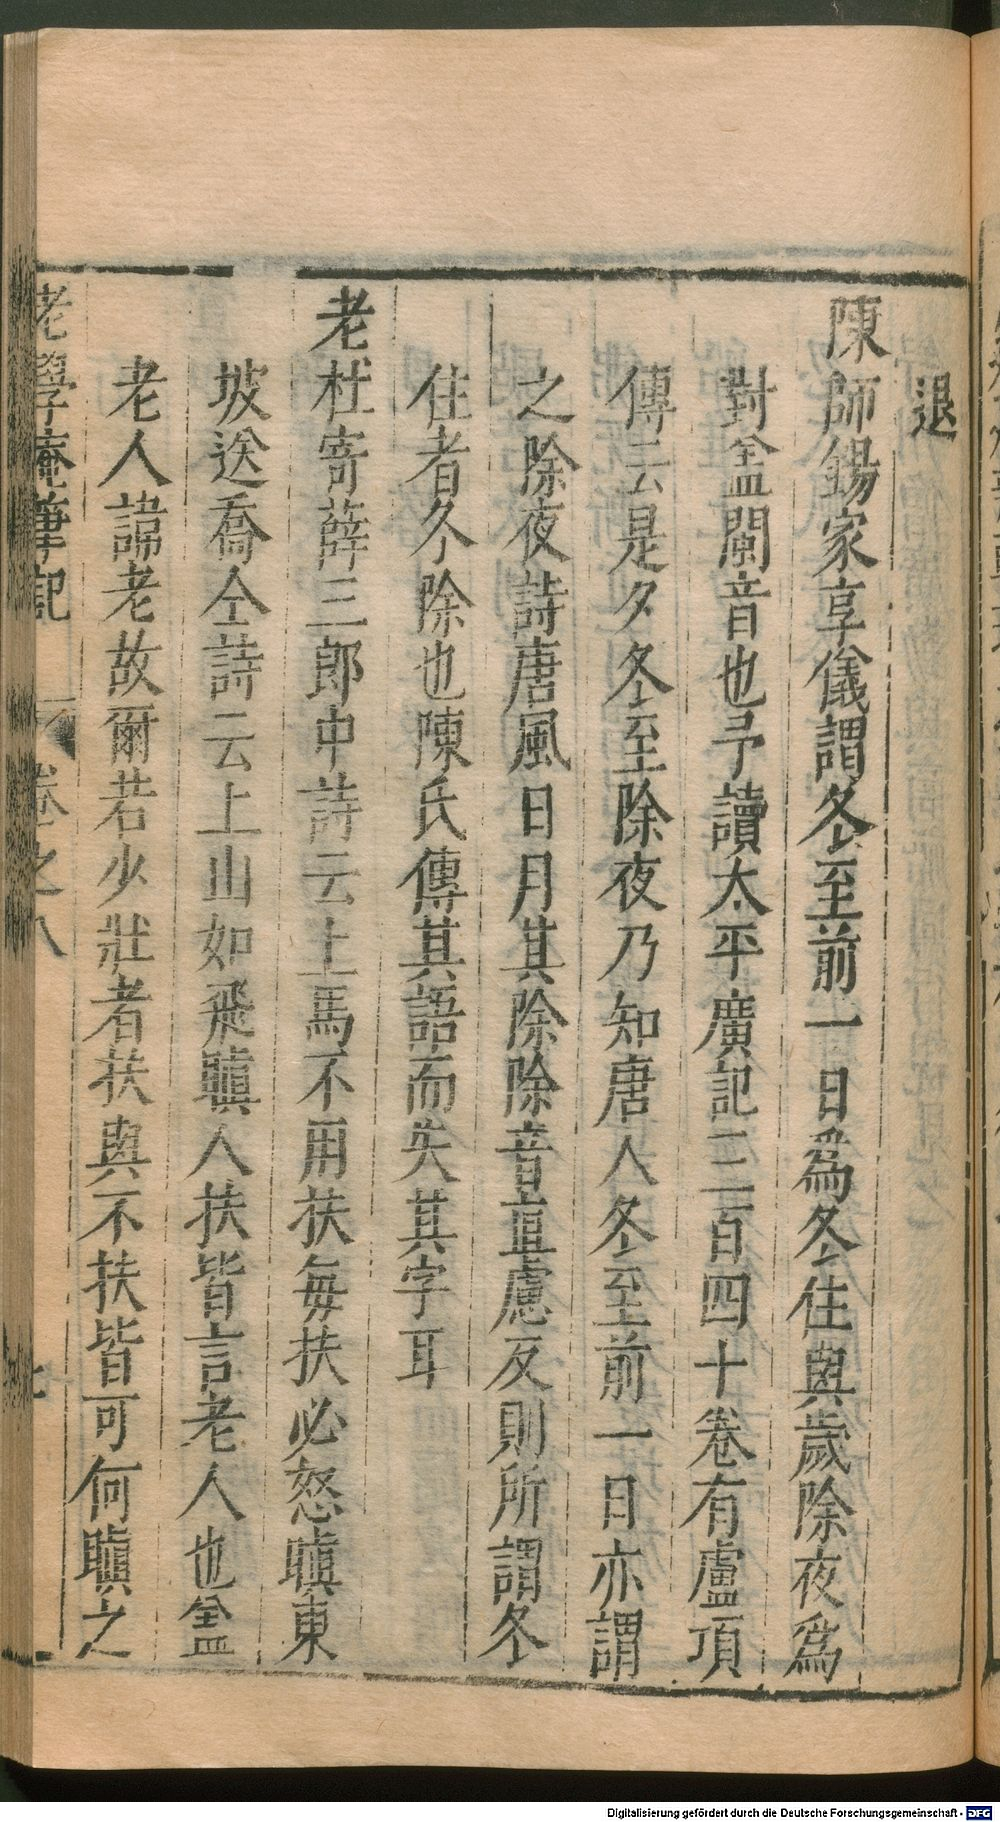 退
陳師錫家享儀謂冬至前一日爲冬住與歲除夜爲
對盖閩音也予讀太平廣記三百四十卷有盧頊
傳云是夕冬至除夜乃知唐人冬至前一日亦謂
之除夜詩唐風日月其除除音直慮反則所謂冬
住者冬除也陳氏傳其語而失其字耳
老杜寄薛三郎中詩云上馬不用扶每扶必怒瞋東
坡送喬仝詩云上山如飛瞋人扶皆言老人也盖
老人諱老故爾若少壯者扶與不扶皆可何瞋之
老學庵筆記 卷之八
Digitalisierung gefördert durch die Deutsche Forschungsgemeinschaft - DFG